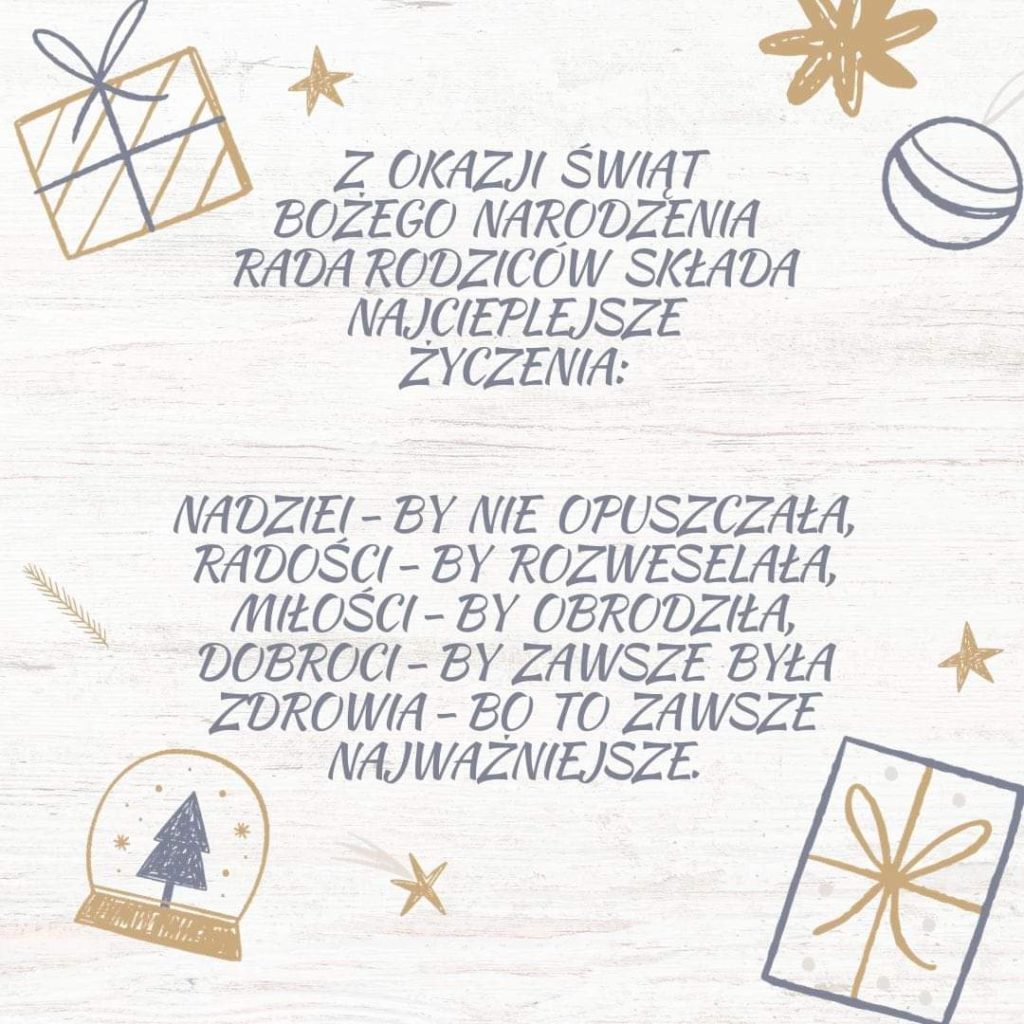 Z OKAZJI ŚWIĄT
BOŻEGO NARODZENIA
RADA RODZICÓW SKŁADA
NAJCIEPLEJSZE
ŻYCZENIA:
NADZIEI – BY NIE OPUSZCZAŁA,
RADOŚCI – BY ROZWESELAŁA,
MIŁOŚCI – BY OBRODZIŁA,
DOBROCI – BY ZAWSZE BYŁA
ZDROWIA – BO TO ZAWSZE
NAJWAŻNIEJSZE.